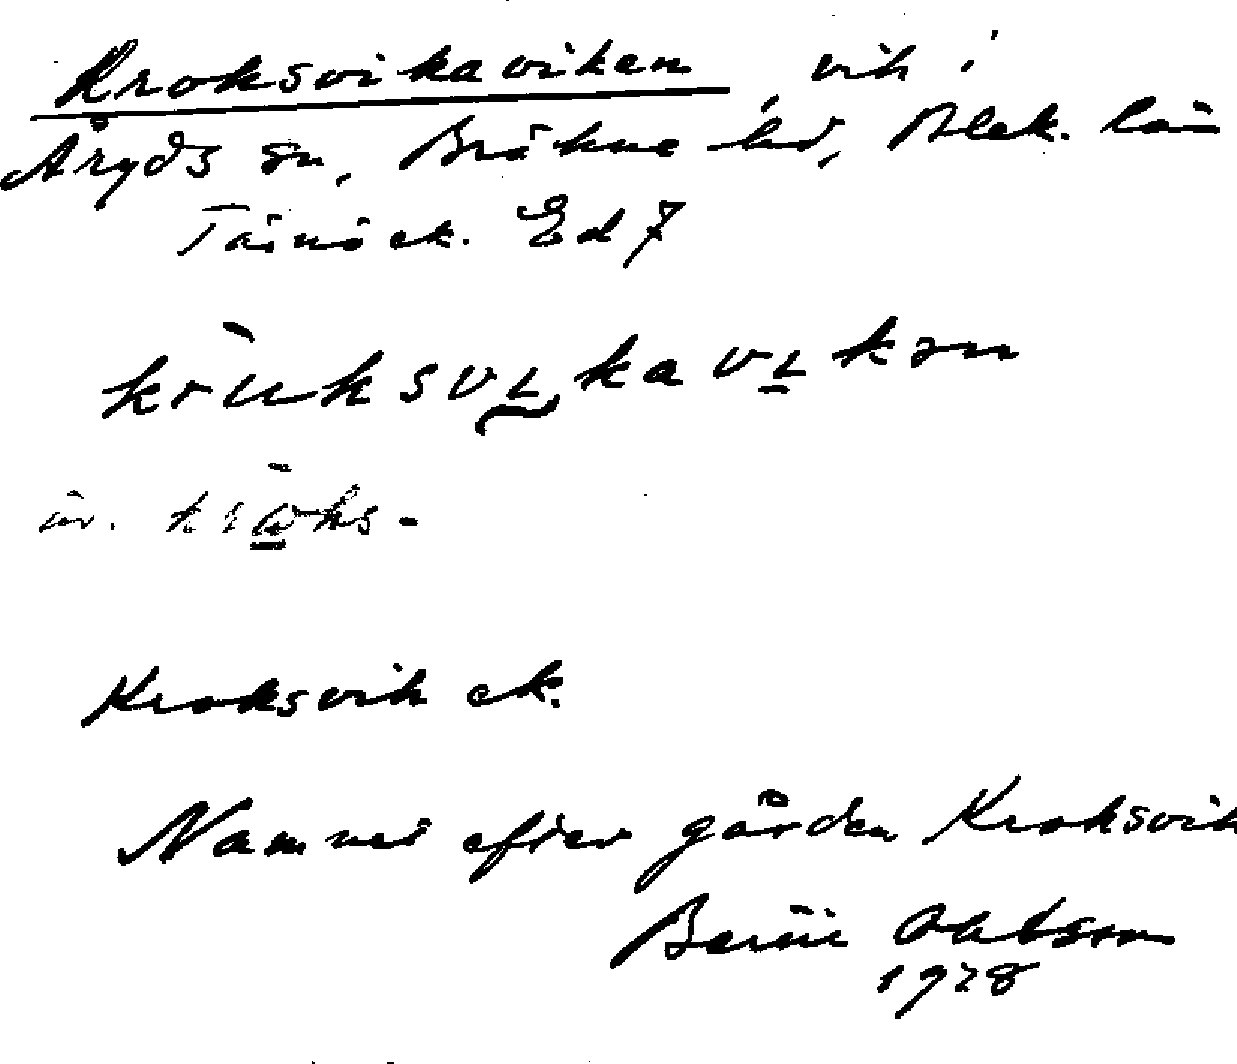 Kroksvikaviken, vik i
Åryds sn, Bräkne hd, Blek. län
Tärnö ek. Ed 7
kruksvɩkavɩkən
äv. krωks-
Kroksvik ek.
Namnet efter gården Kroksvik
Bertil Ohlsson
1928